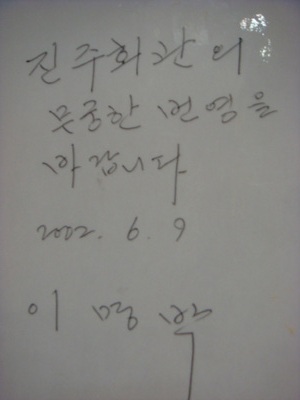 진주회관의
무궁한 번영을
바랍니다
2002. 6. 9
이 명 박